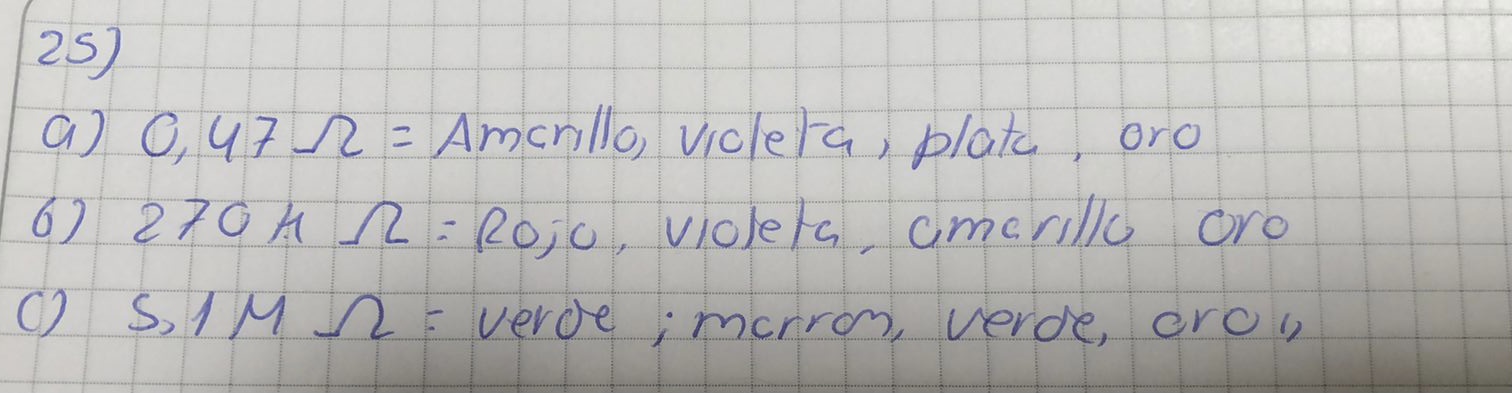 25)
a) 0,47 Ω = Amarillo, violeta, plata, oro
b) 270 K Ω = Rojo, violeta, amarillo oro
c) 5,1 M Ω = verde ; marron, verde, oro,,